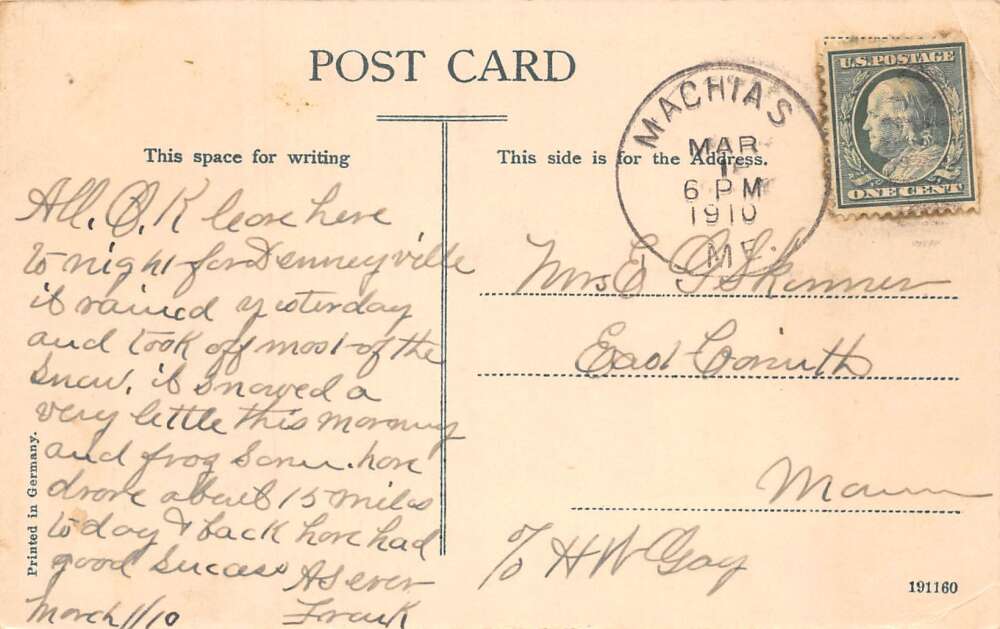 POST CARD
This space for writing
This side is for the Address.
MACHIAS
MAR
1
6 PM
1910
ME
U.S. POSTAGE
ONE CENT
All. O.K leave here
to night for Denneyville
it rained yesterday
and took off most of the
snow. it snowed a
very little this morning
and frog some. have
drove about 15 miles
to day & back have had
good success As ever
March 1/10 Frank
Mrs E G Skinner
East Corinth
Maine
c/o H W Gay
Printed in Germany.
191160